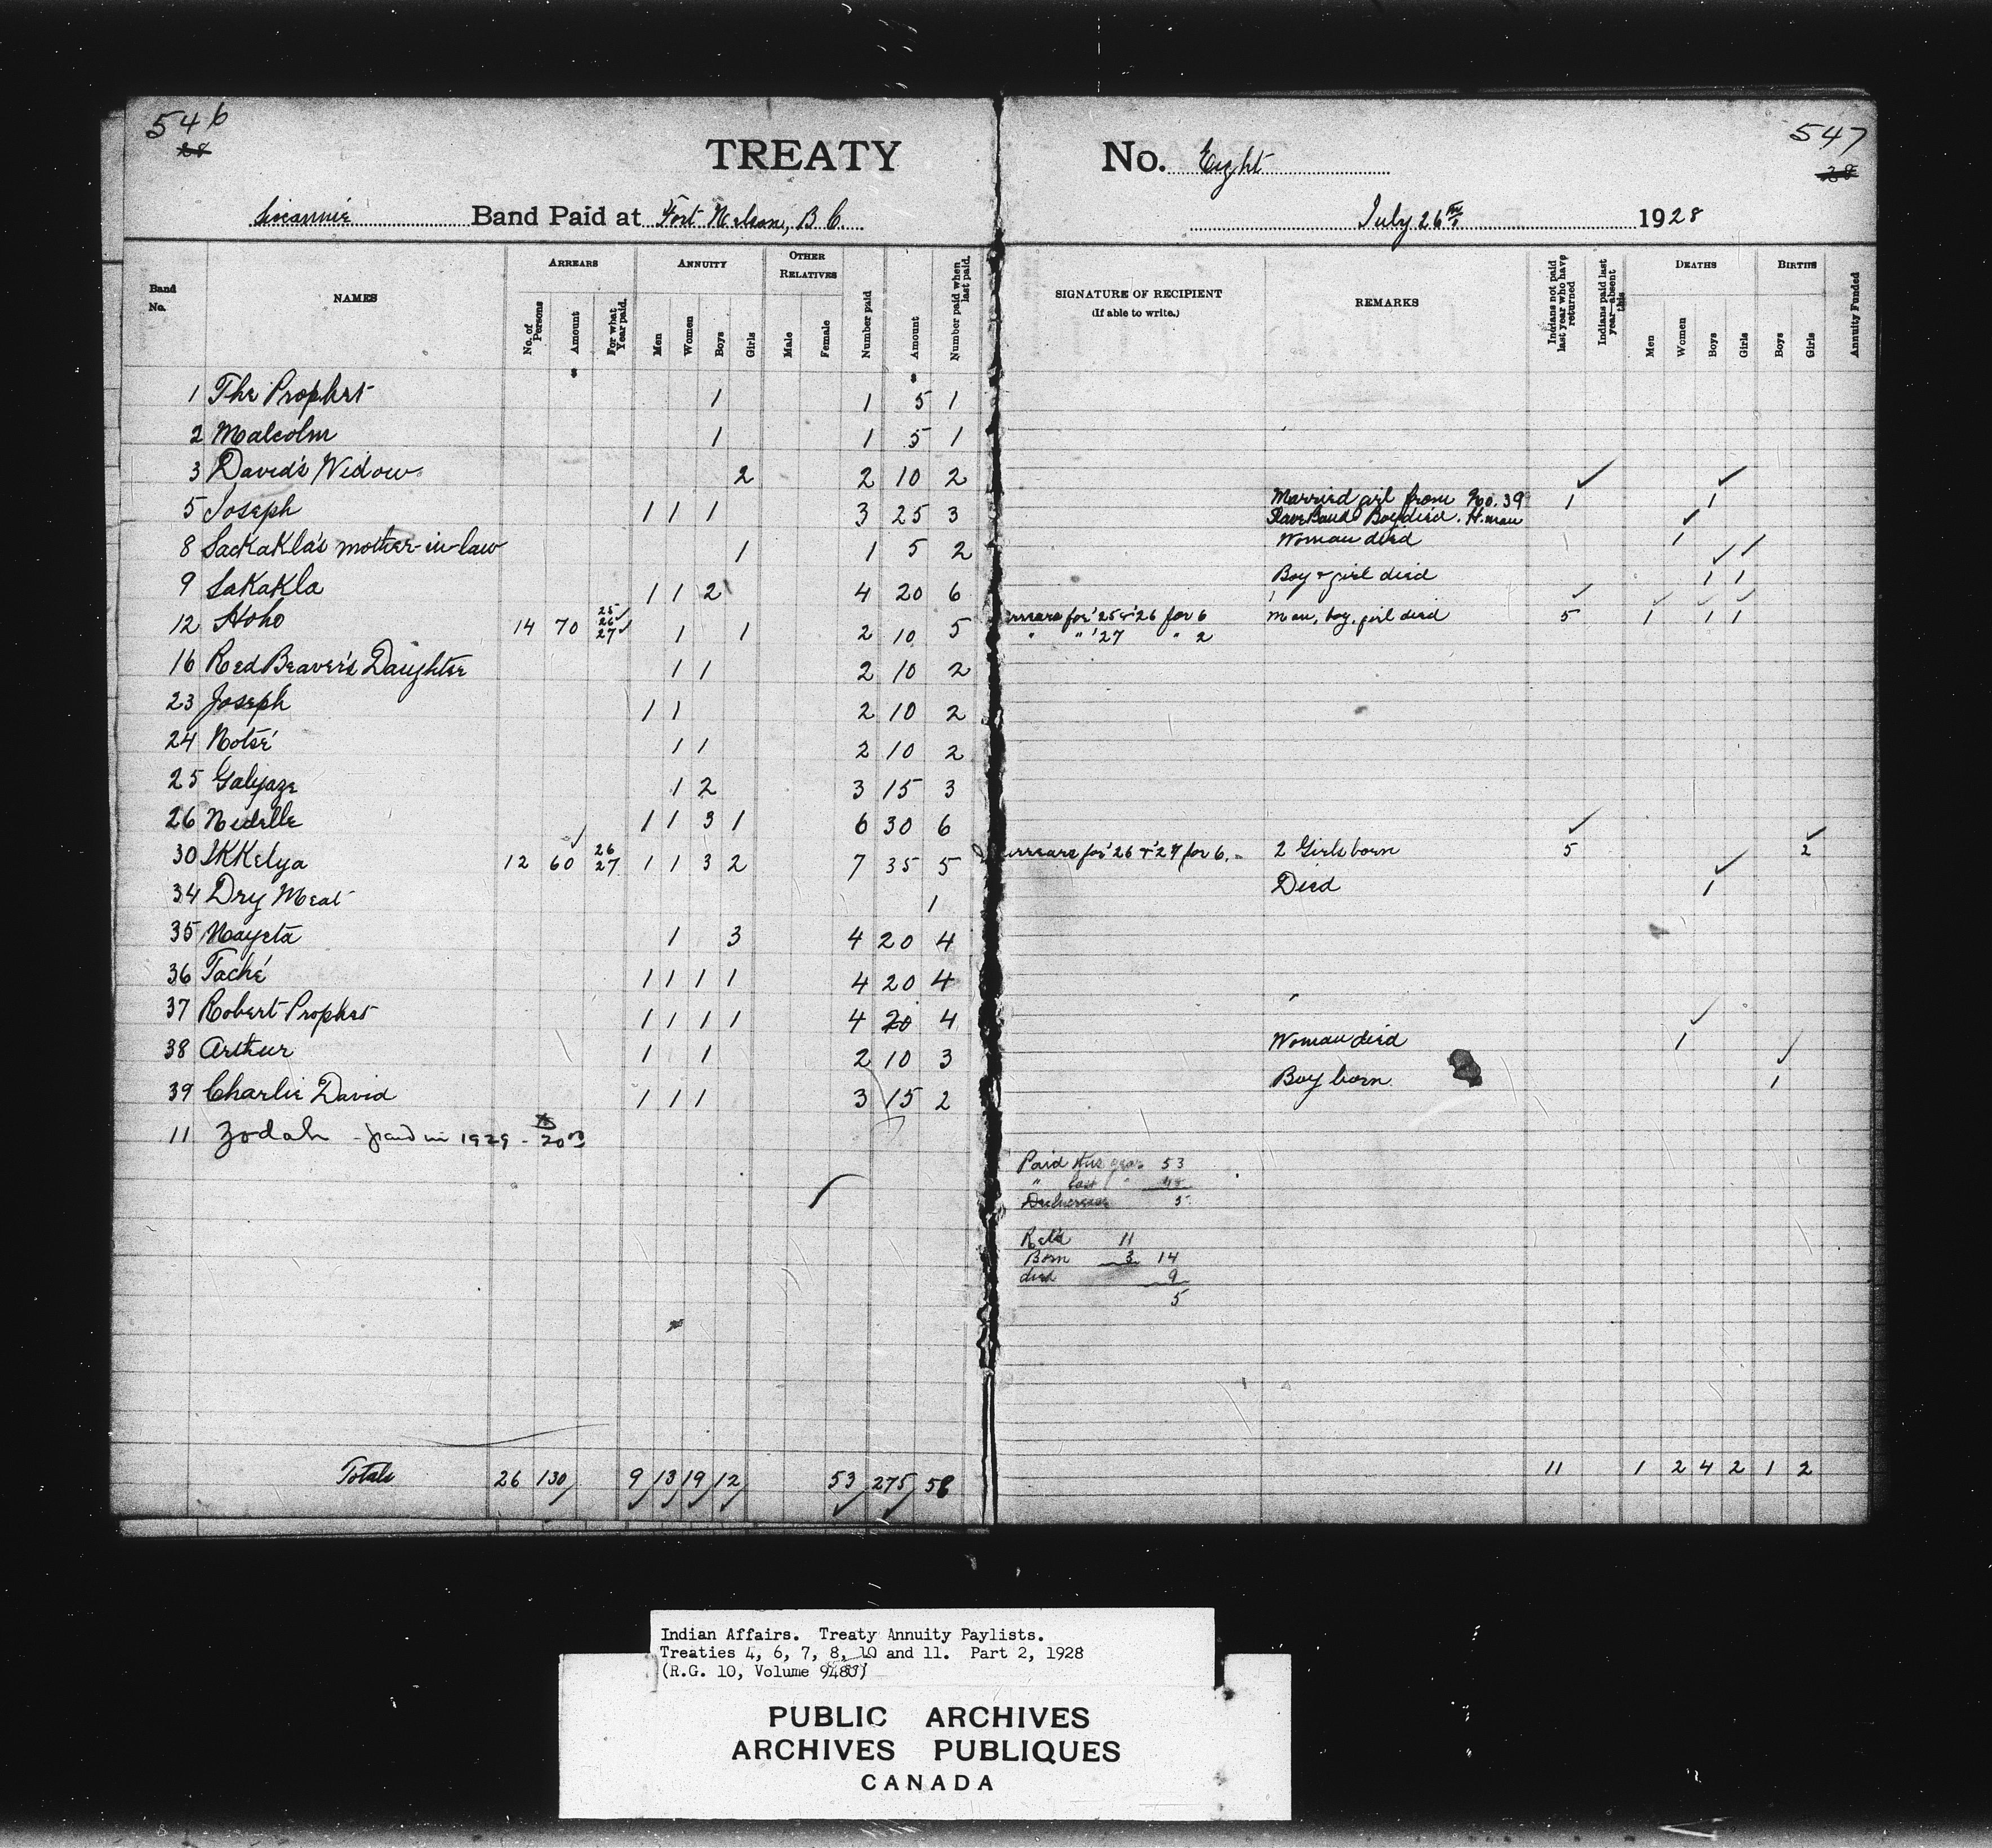 546
547
28
28
TREATY No. Eight
Siccannie Band Paid at Fort Nelson, B C. July 26th 1928
Band No.
NAMES
ARREARS
No. of Persons
Amount
For what Year paid.
ANNUITY
Men
Women
Boys
Girls
OTHER RELATIVES
Male
Female
Number paid
Amount
Number paid when last paid.
SIGNATURE OF RECIPIENT
(If able to write.)
REMARKS
Indians not paid last year who have returned
Indians paid last year—absent this
DEATHS
Men
Women
Boys
Girls
BIRTHS
Boys
Girls
Annuity Funded
1 The Prophet 1 1 5 1
2 Malcolm 1 1 5 1
3 David's Widow 2 2 10 2
5 Joseph 1 1 1 3 25 3 Married girl from No. 39 Slave Band Boy died. 1 1
8 Sackakla's mother-in-law 1 1 5 2 Woman died 1
9 Sakakla 1 1 2 4 20 6 Boy & girl died 1 1
12 Hoho 14 70 25 26 27 1 1 2 10 5 arrears for '25 & '26 for 6 " " '27 " 2 Man, boy, girl died 5 1 1 1
16 Red Beaver's Daughter 1 1 2 10 2
23 Joseph 1 1 2 10 2
24 Notsé 1 1 2 10 2
25 Galyaze 1 2 3 15 3
26 Nedelle 1 1 3 1 6 30 6
30 Ikkelya 12 60 26 27 1 1 3 2 7 35 5 arrears for '26 & '27 for 6. 2 Girls born 5 2
34 Dry Meat 1 Died 1
35 Nayeta 1 3 4 20 4
36 Taché 1 1 1 1 4 20 4
37 Robert Prophet 1 1 1 1 4 20 4
38 Arthur 1 1 2 10 3 Woman died 1
39 Charlie David 1 1 1 3 15 2 Boy born 1
11 Zodah - paid in 1929 - $20.00
Paid this year 53
" last "
5
Ret'd 11
Born 3 14
died 9
5
Totals 26 130 9 13 19 12 53 275 58 11 1 2 4 2 1 2
Indian Affairs. Treaty Annuity Paylists.
Treaties 4, 6, 7, 8, 10 and 11. Part 2, 1928
(R.G. 10, Volume 9480)
PUBLIC ARCHIVES
ARCHIVES PUBLIQUES
CANADA